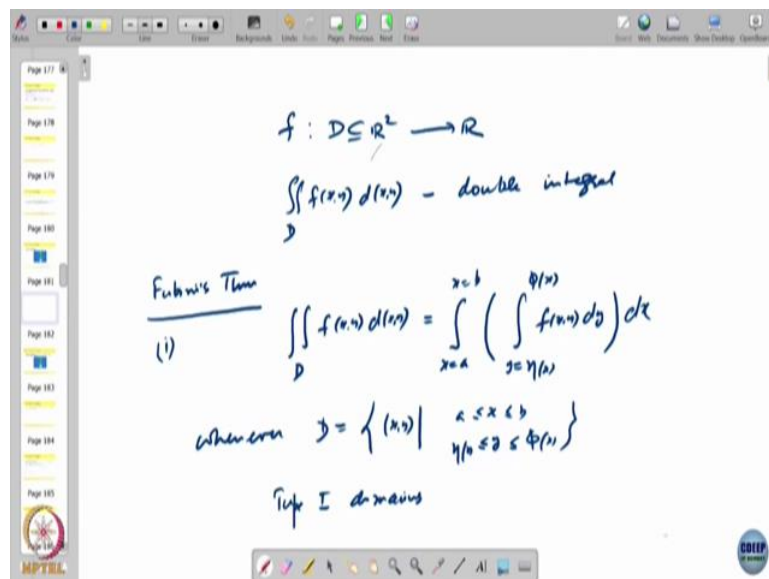 Color Line Eraser Backgrounds Undo Pages Previous Next Erase Board Web Documents Show Desktop OpenBoard
Page 177
Page 178
Page 179
Page 180
Page 181
Page 182
Page 183
Page 184
Page 185
f : D ⊆ ℝ² ⟶ ℝ
∬_D f(x,y) d(x,y) - double integral
Fubini's Thm
(i) ∬_D f(x,y) d(x,y) = ∫_{x=a}^{x=b} ( ∫_{y=η(x)}^{φ(x)} f(x,y) dy ) dx
whenever D = { (x,y) | a ≤ x ≤ b
η(x) ≤ y ≤ φ(x) }
Type I domains
NPTEL
CDEEP